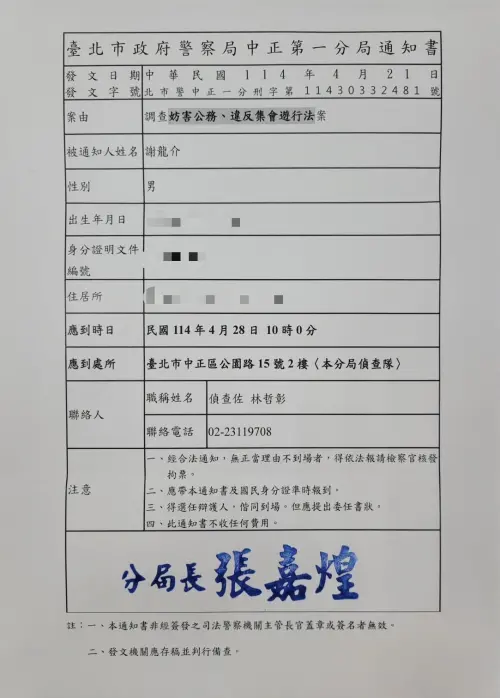 臺北市政府警察局中正第一分局通知書
發文日期 中華民國114年4月21日
發文字號 北市警中正一分刑字第11430332481號
案由 調查妨害公務、違反集會遊行法案
被通知人姓名 謝龍介
性別 男
出生年月日
身分證明文件
編號
住居所
應到時日 民國 114 年 4 月 28 日 10 時 0 分
應到處所 臺北市中正區公園路 15 號 2 樓〈本分局偵查隊〉
聯絡人
職稱姓名 偵查佐 林哲彰
聯絡電話 02-23119708
注意
一、經合法通知,無正當理由不到場者,得依法報請檢察官核發
拘票。
二、應帶本通知書及國民身分證準時報到。
三、得選任辯護人,偕同到場。但應提出委任書狀。
四、此通知書不收任何費用。
分局長 張嘉煌
註:一、本通知書非經簽發之司法警察機關主管長官蓋章或簽名者無效。
二、發文機關應存稿並判行備查。